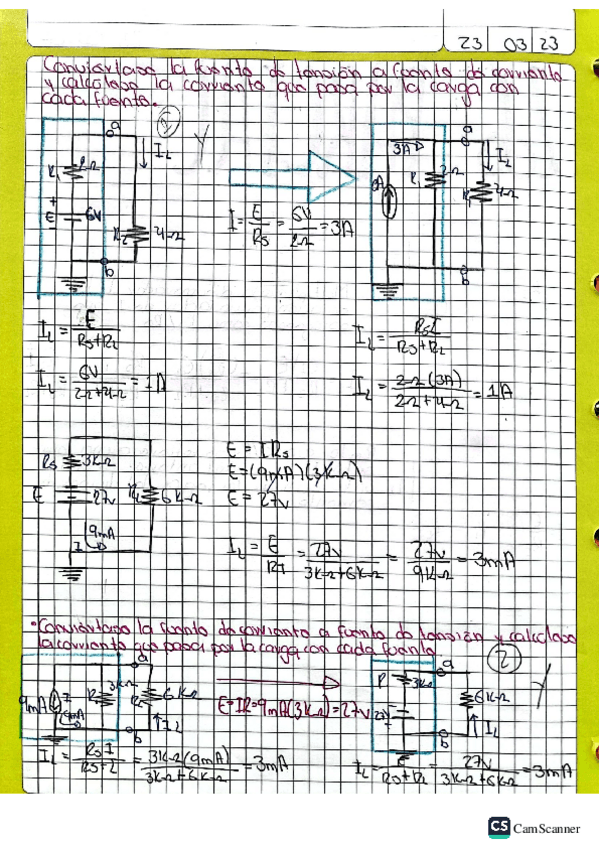 23 03 23
Conviértase la fuente de tensión a fuente de corriente
y calcúlese la corriente que pasa por la carga con
cada fuente.
1
a
IL
R1 2Ω
+
E 6V
-
RL 4Ω
b
I = E/Rs = 6V/2Ω = 3A
3A
a
IL
3A
R1 2Ω
RL 4Ω
b
IL = E/(Rs+RL)
IL = RsI/(Rs+RL)
IL = 6V/(2Ω+4Ω) = 1A
IL = 2Ω(3A)/(2Ω+4Ω) = 1A
Rs 3KΩ
E 27V
RL 6KΩ
9mA
I
E = IRs
E = (9mA)(3KΩ)
E = 27V
IL = E/RT = 27V/(3KΩ+6KΩ) = 27V/9KΩ = 3mA
•Conviértase la fuente de corriente a fuente de tensión y calcúlese
la corriente que pasa por la carga con cada fuente
2
9mA I
9mA
Rs 3KΩ
a
6KΩ
IL
b
E=IR=9mA(3KΩ)=27V
R 3KΩ
27V
a
6KΩ
IL
b
IL = RsI/(Rs+L) = 3KΩ(9mA)/(3KΩ+6KΩ) = 3mA
IL = E/(Rs+RL) = 27V/(3KΩ+6KΩ) = 3mA
CS CamScanner